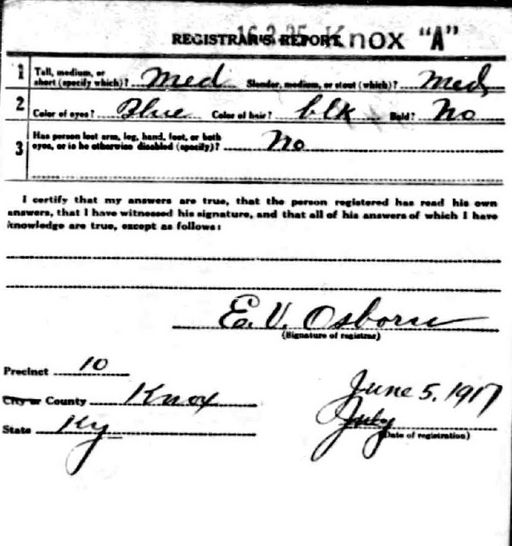 REGISTRAR'S REPORT 16-3-25 Knox "A"
1 Tall, medium, or short (specify which)? Med Slender, medium, or stout (which)? Med
2 Color of eyes? Blue Color of hair? blk Bald? No
3 Has person lost arm, leg, hand, foot, or both
eyes, or is he otherwise disabled (specify)? No
I certify that my answers are true, that the person registered has read his own
answers, that I have witnessed his signature, and that all of his answers of which I have
knowledge are true, except as follows:
E. V. Osborn
(Signature of registrar)
Precinct 10
City or County Knox
June 5, 1917
State Ky
July
(Date of registration)